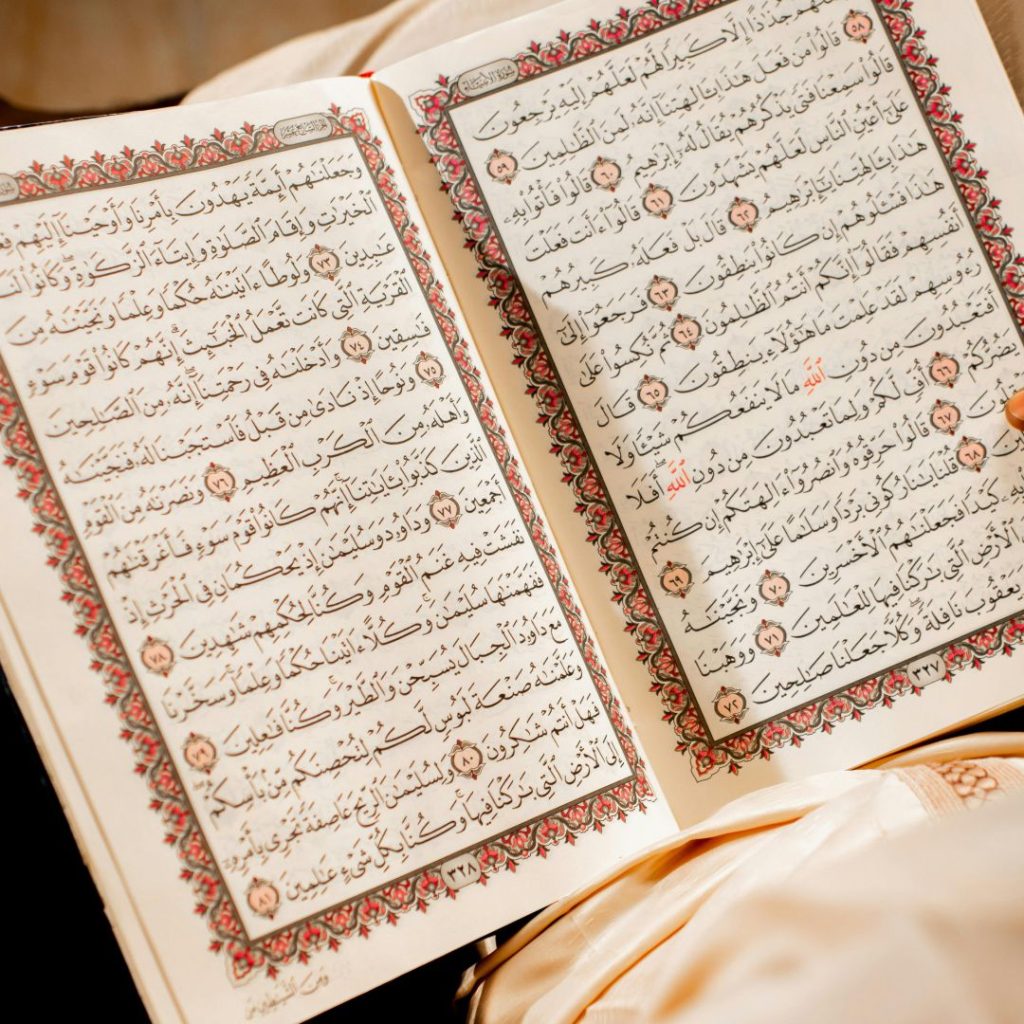 سورة الأنبياء
جُذَٰذًا إِلَّا كَبِيرًا لَّهُمْ لَعَلَّهُمْ إِلَيْهِ يَرْجِعُونَ
٥٨ قَالُوا۟ مَن فَعَلَ هَٰذَا بِـَٔالِهَتِنَآ إِنَّهُۥ لَمِنَ ٱلظَّٰلِمِينَ ٥٩
قَالُوا۟ سَمِعْنَا فَتًى يَذْكُرُهُمْ يُقَالُ لَهُۥٓ إِبْرَٰهِيمُ ٦٠ قَالُوا۟ فَأْتُوا۟ بِهِۦ
عَلَىٰٓ أَعْيُنِ ٱلنَّاسِ لَعَلَّهُمْ يَشْهَدُونَ ٦١ قَالُوٓا۟ ءَأَنتَ فَعَلْتَ
هَٰذَا بِـَٔالِهَتِنَا يَٰٓإِبْرَٰهِيمُ ٦٢ قَالَ بَلْ فَعَلَهُۥ كَبِيرُهُمْ
هَٰذَا فَسْـَٔلُوهُمْ إِن كَانُوا۟ يَنطِقُونَ ٦٣ فَرَجَعُوٓا۟ إِلَىٰٓ
أَنفُسِهِمْ فَقَالُوٓا۟ إِنَّكُمْ أَنتُمُ ٱلظَّٰلِمُونَ ٦٤ ثُمَّ نُكِسُوا۟ عَلَىٰ
رُءُوسِهِمْ لَقَدْ عَلِمْتَ مَا هَٰٓؤُلَآءِ يَنطِقُونَ ٦٥ قَالَ
أَفَتَعْبُدُونَ مِن دُونِ ٱللَّهِ مَا لَا يَنفَعُكُمْ شَيْـًٔا وَلَا
يَضُرُّكُمْ ٦٦ أُفٍّ لَّكُمْ وَلِمَا تَعْبُدُونَ مِن دُونِ ٱللَّهِ ۖ أَفَلَا
٦٧ قَالُوا۟ حَرِّقُوهُ وَٱنصُرُوٓا۟ ءَالِهَتَكُمْ إِن كُنتُمْ
٦٨ قُلْنَا يَٰنَارُ كُونِى بَرْدًا وَسَلَٰمًا عَلَىٰٓ إِبْرَٰهِيمَ ٦٩
بِهِۦ كَيْدًا فَجَعَلْنَٰهُمُ ٱلْأَخْسَرِينَ ٧٠ وَنَجَّيْنَٰهُ
ٱلْأَرْضِ ٱلَّتِى بَٰرَكْنَا فِيهَا لِلْعَٰلَمِينَ ٧١ وَوَهَبْنَا
يَعْقُوبَ نَافِلَةً ۖ وَكُلًّا جَعَلْنَا صَٰلِحِينَ ٧٢
٣٢٧
وَجَعَلْنَٰهُمْ أَئِمَّةً يَهْدُونَ بِأَمْرِنَا وَأَوْحَيْنَآ إِلَيْهِمْ
ٱلْخَيْرَٰتِ وَإِقَامَ ٱلصَّلَوٰةِ وَإِيتَآءَ ٱلزَّكَوٰةِ ۖ وَكَانُوا۟
عَٰبِدِينَ ٧٣ وَلُوطًا ءَاتَيْنَٰهُ حُكْمًا وَعِلْمًا وَنَجَّيْنَٰهُ مِنَ
ٱلْقَرْيَةِ ٱلَّتِى كَانَت تَّعْمَلُ ٱلْخَبَٰٓئِثَ ۗ إِنَّهُمْ كَانُوا۟ قَوْمَ سَوْءٍ
فَٰسِقِينَ ٧٤ وَأَدْخَلْنَٰهُ فِى رَحْمَتِنَآ ۖ إِنَّهُۥ مِنَ ٱلصَّٰلِحِينَ
٧٥ وَنُوحًا إِذْ نَادَىٰ مِن قَبْلُ فَٱسْتَجَبْنَا لَهُۥ فَنَجَّيْنَٰهُ
وَأَهْلَهُۥ مِنَ ٱلْكَرْبِ ٱلْعَظِيمِ ٧٦ وَنَصَرْنَٰهُ مِنَ ٱلْقَوْمِ
ٱلَّذِينَ كَذَّبُوا۟ بِـَٔايَٰتِنَآ ۚ إِنَّهُمْ كَانُوا۟ قَوْمَ سَوْءٍ فَأَغْرَقْنَٰهُمْ
أَجْمَعِينَ ٧٧ وَدَاوُۥدَ وَسُلَيْمَٰنَ إِذْ يَحْكُمَانِ فِى ٱلْحَرْثِ إِذْ
نَفَشَتْ فِيهِ غَنَمُ ٱلْقَوْمِ وَكُنَّا لِحُكْمِهِمْ شَٰهِدِينَ ٧٨
فَفَهَّمْنَٰهَا سُلَيْمَٰنَ ۚ وَكُلًّا ءَاتَيْنَا حُكْمًا وَعِلْمًا ۚ وَسَخَّرْنَا
مَعَ دَاوُۥدَ ٱلْجِبَالَ يُسَبِّحْنَ وَٱلطَّيْرَ ۚ وَكُنَّا فَٰعِلِينَ ٧٩
وَعَلَّمْنَٰهُ صَنْعَةَ لَبُوسٍ لَّكُمْ لِتُحْصِنَكُم مِّنۢ بَأْسِكُمْ ۖ
فَهَلْ أَنتُمْ شَٰكِرُونَ ٨٠ وَلِسُلَيْمَٰنَ ٱلرِّيحَ عَاصِفَةً تَجْرِى بِأَمْرِهِۦٓ
إِلَى ٱلْأَرْضِ ٱلَّتِى بَٰرَكْنَا فِيهَا ۚ وَكُنَّا بِكُلِّ شَىْءٍ عَٰلِمِينَ ٨١
٣٢٨